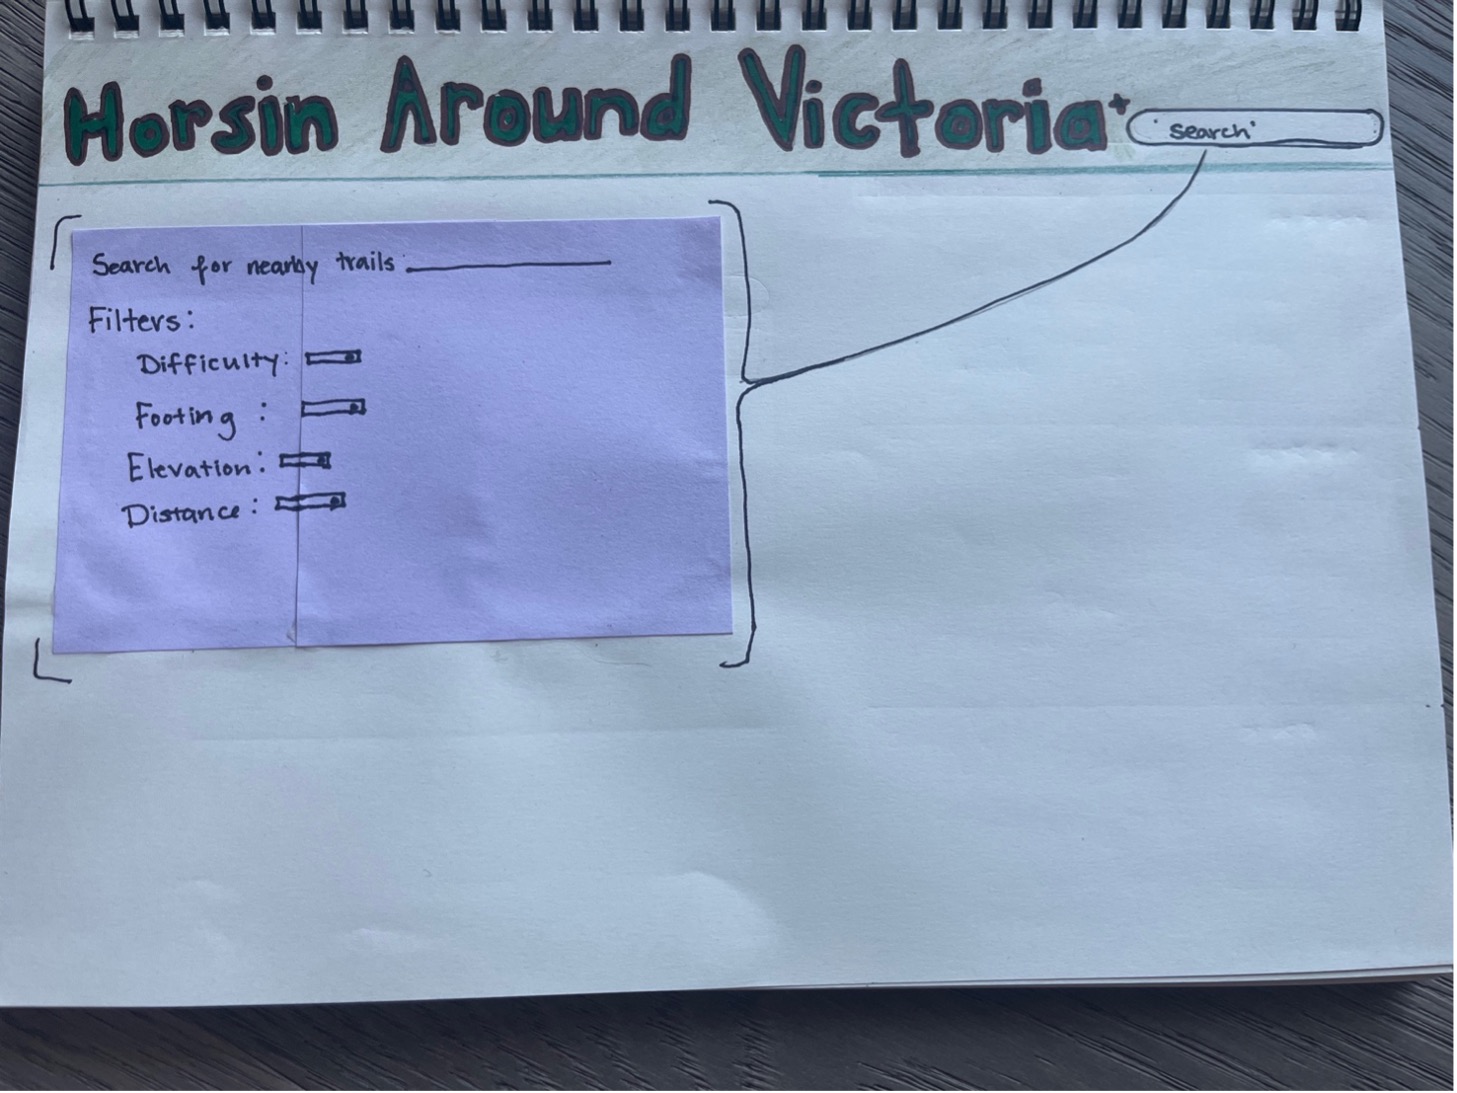 Horsin Around Victoria
'search'
Search for nearby trails:
Filters:
Difficulty:
Footing :
Elevation:
Distance: